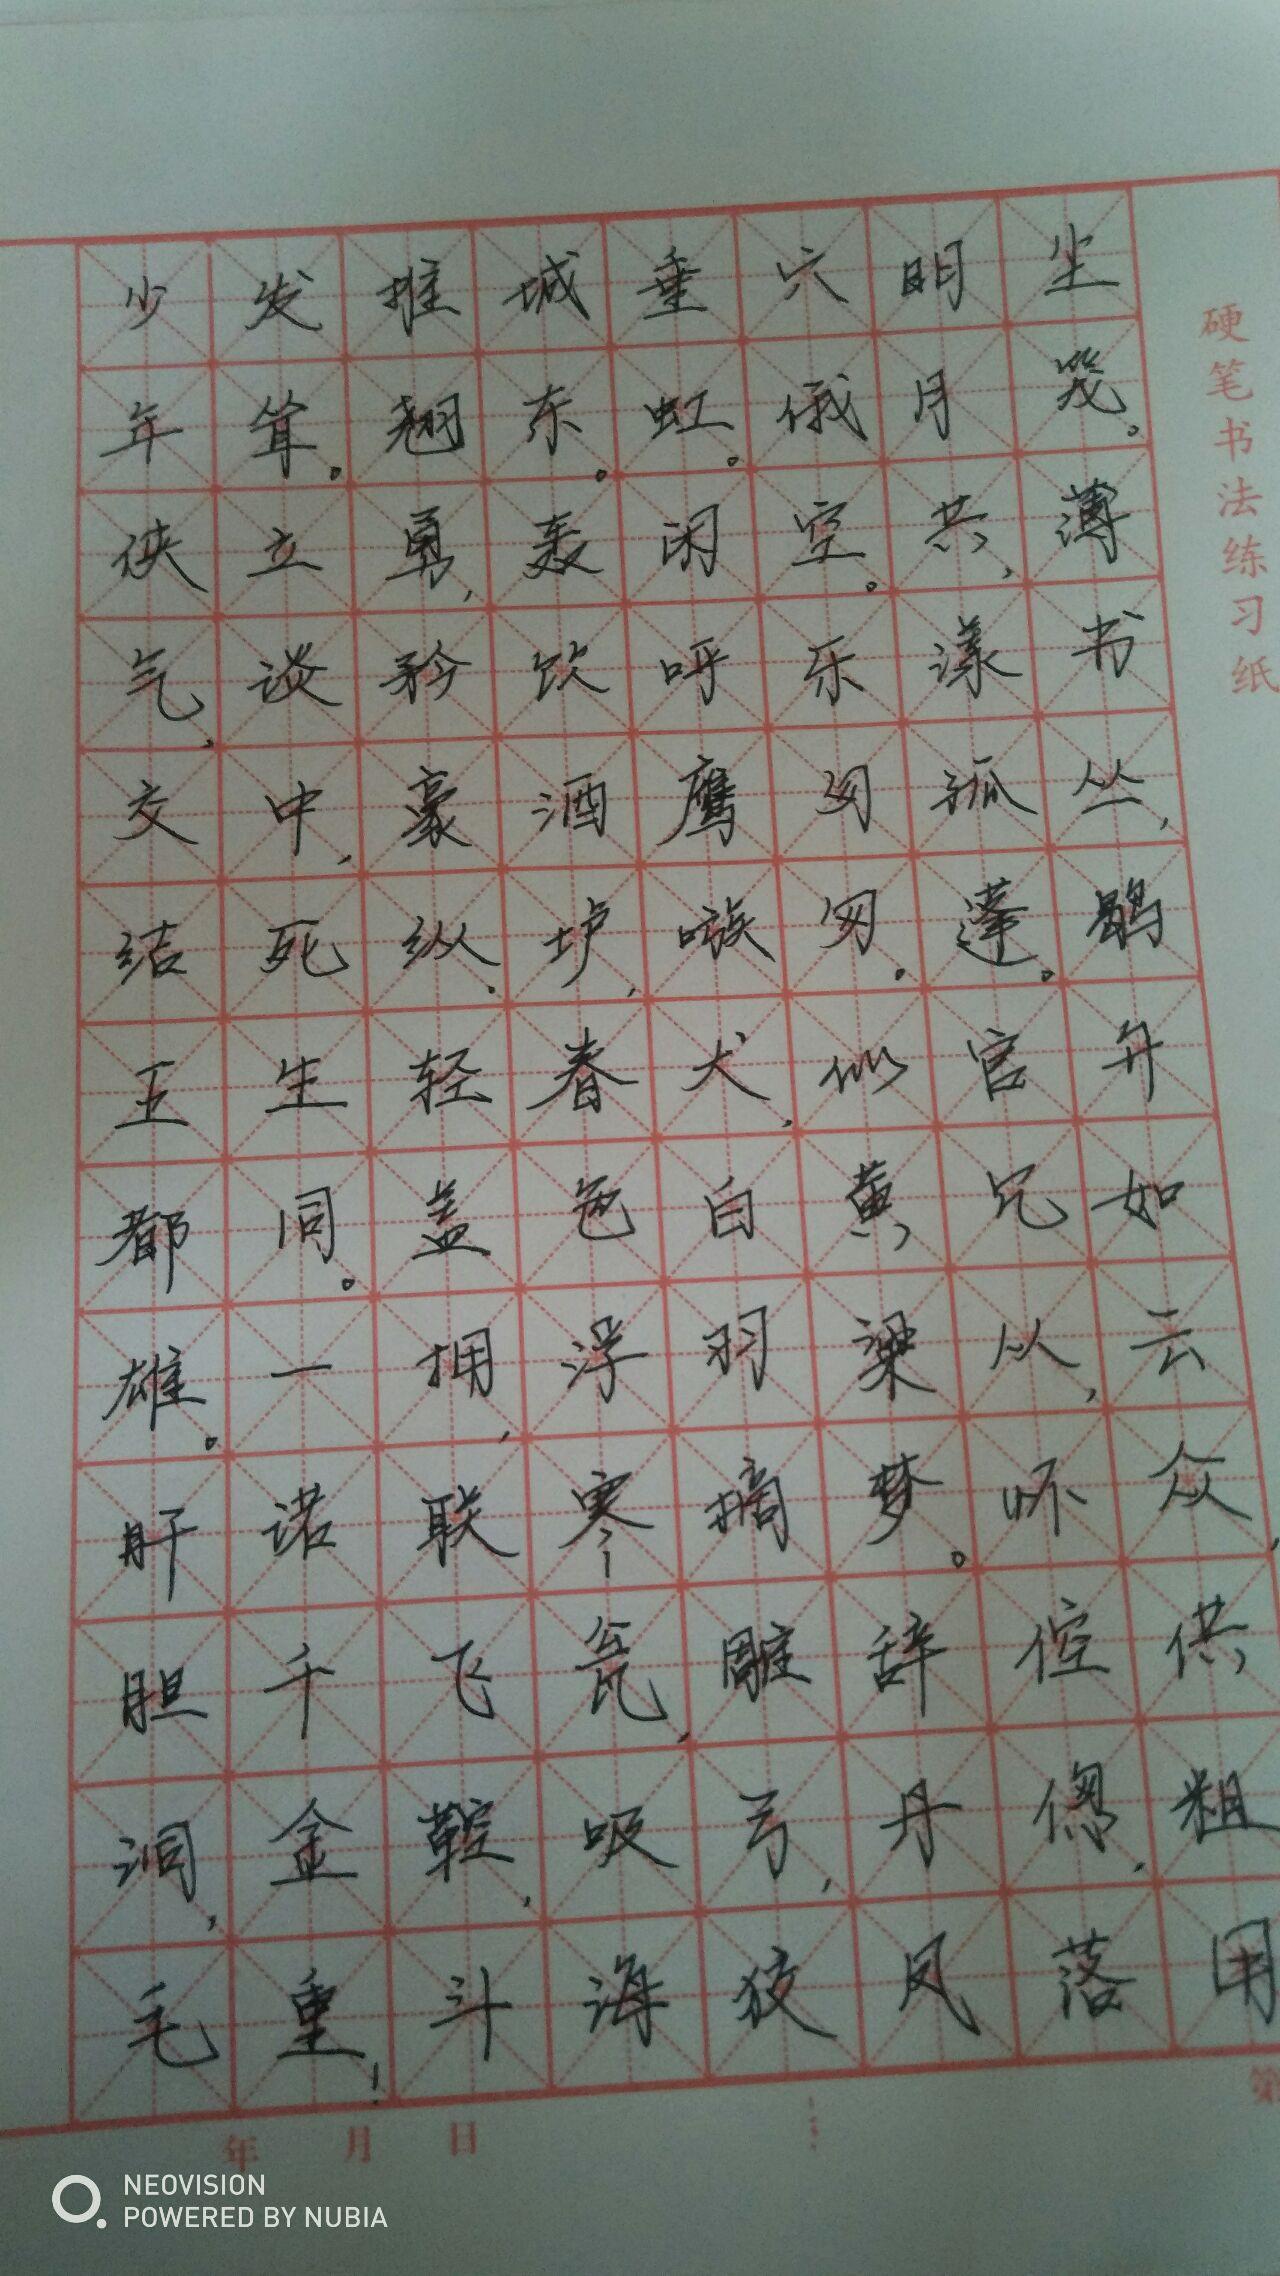 少年侠气,交结五都雄。肝胆洞,毛
发耸。立谈中,死生同。一诺千金重!
推翘勇,矜豪纵。轻盖拥,联飞鞚,斗
城东。轰饮酒垆,春色浮寒瓮,吸海
垂虹。闲呼鹰嗾犬,白羽摘雕弓,狡
穴俄空。乐匆匆。似黄梁梦。辞丹凤
明月共,漾孤蓬。官冗从,怀倥偬,落
尘笼。薄书丛,鹖弁如云众,供粗用
硬笔书法练习纸
年 月 日
第
NEOVISION
POWERED BY NUBIA